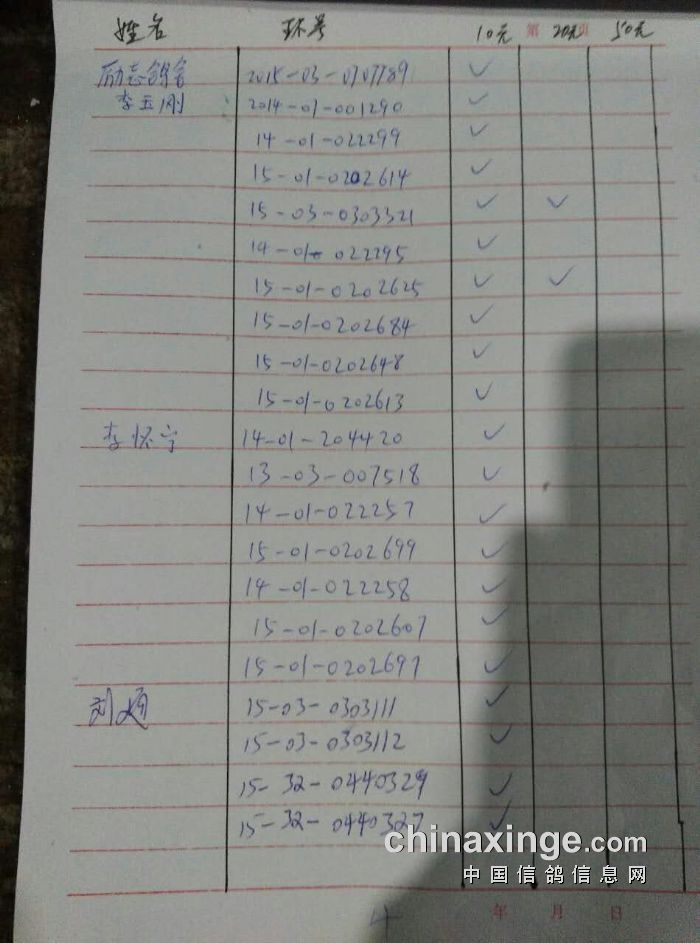 姓名 环号 10元 第 20元 页 50元
励志鸽舍 2015-03-0707789 ✓
李玉刚 2014-01-001290 ✓
14-01-022299 ✓
15-01-0202614 ✓
15-03-0303321 ✓ ✓
14-01-022295 ✓
15-01-0202625 ✓ ✓
15-01-0202684 ✓
15-01-0202648 ✓
15-01-0202613 ✓
李怀宁 14-01-204420 ✓
13-03-007518 ✓
14-01-022257 ✓
15-01-0202699 ✓
14-01-022258 ✓
15-01-0202607 ✓
15-01-0202697 ✓
刘 15-03-0303111 ✓
15-03-0303112 ✓
15-32-0440329 ✓
15-32-0440327 ✓
chinaxinge.com
中国信鸽信息网
4 年 月 日